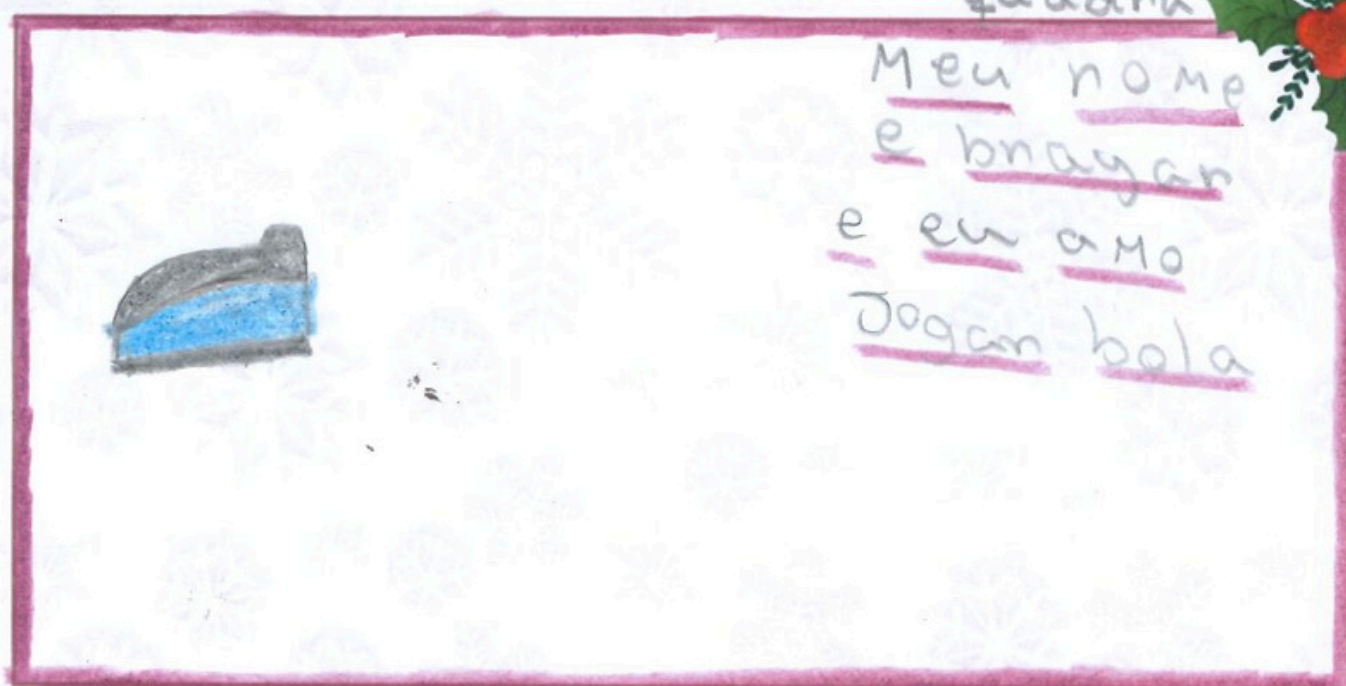 Meu nome
e brayan
e eu amo
Jogar bola